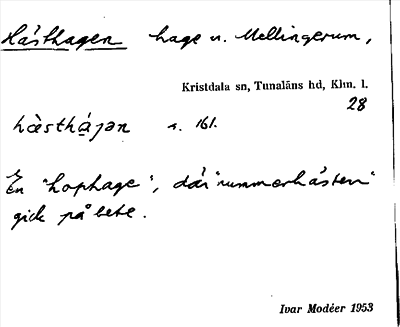 Hästhagen hage u. Mellingerum,
Kristdala sn, Tunaläns hd, Klm. l.
28
hàsthą̀jən s. 161.
En "hophage", där "rummerhästen"
gick på bete.
Ivar Modéer 1953